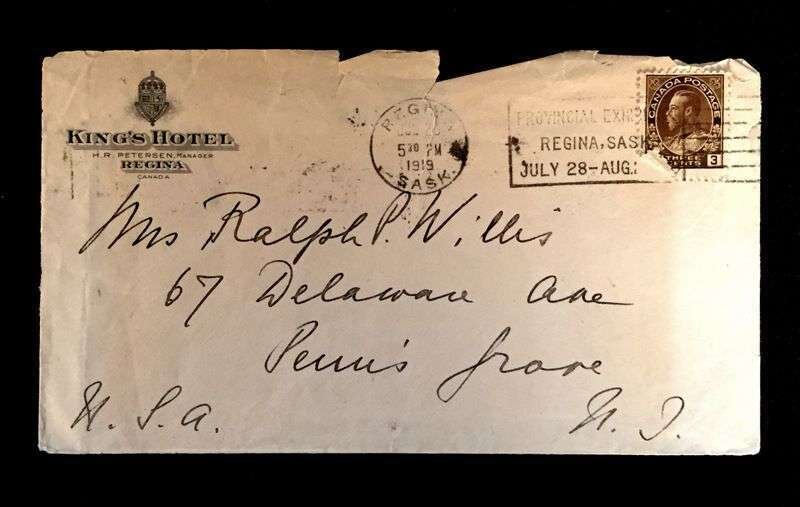 KING'S HOTEL
H.R. PETERSEN, MANAGER
REGINA
CANADA
REGINA
5 30 PM
1919
SASK.
PROVINCIAL
REGINA, SASK
JULY 28-AUG.
CANADA POSTAGE
THREE
CENTS 3
Mrs Ralph P. Willis
67 Delaware Ave
Penn's Grove
U.S.A. N.J.